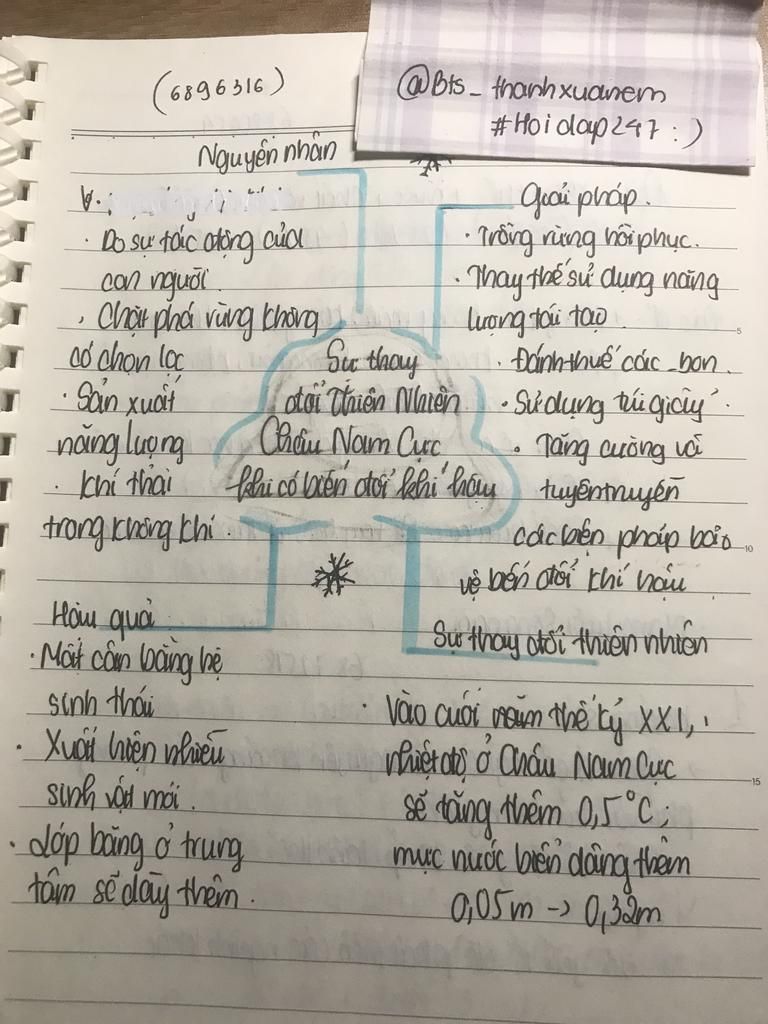 (6896316)
@Bts_thanhxuanem
#Hoidap247:)
Nguyên nhân
· Do sự tác động của
con người.
· Chặt phá rừng không
có chọn lọc
· Sản xuất
năng lượng
· khí thải
trong không khí.
Giải pháp.
· Trồng rừng hồi phục.
· Thay thế sử dụng năng
lượng tái tạo.
· Đánh thuế các_bon.
· Sử dụng túi giấy.
· Tăng cường và
tuyên truyền
các biện pháp bảo
vệ biến đổi khí hậu
Sự thay
đổi Thiên Nhiên
Châu Nam Cực
khi có biến đổi khí hậu
Hậu quả
· Mất cân bằng hệ
sinh thái
· Xuất hiện nhiều
sinh vật mới.
· Lớp băng ở trung
tâm sẽ dày thêm.
Sự thay đổi thiên nhiên
· Vào cuối năm thế kỷ XXI,
nhiệt độ ở Châu Nam Cực
sẽ tăng thêm 0,5°C;
mực nước biển dâng thêm
0,05m -> 0,32m
5
10
15